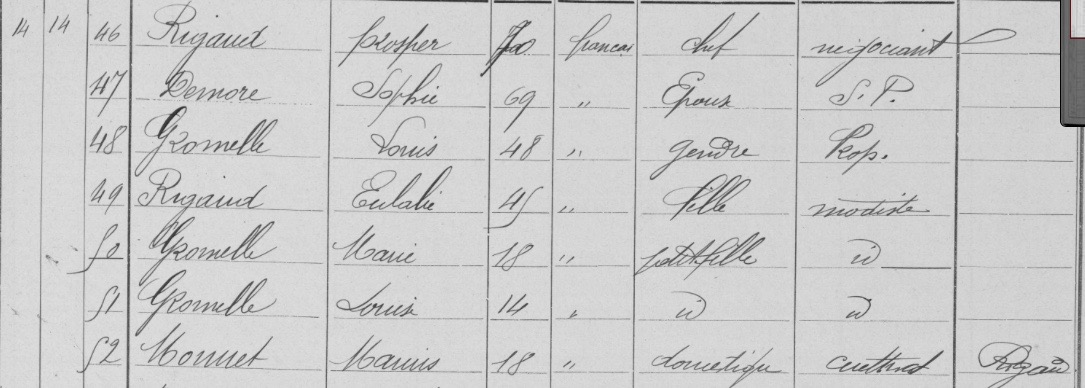 14 14 46 Rigaud prosper 70 francais chef négociant
47 Demore Sophie 69 " Epouse S. P.
48 Gromelle Louis 48 " gendre
49 Rigaud Eulalie 45 " fille modiste
50 Gromelle Marie 18 " petitfille id
51 Gromelle Louise 14 " id id
52 Monnet Marius 18 " domestique Rigaud